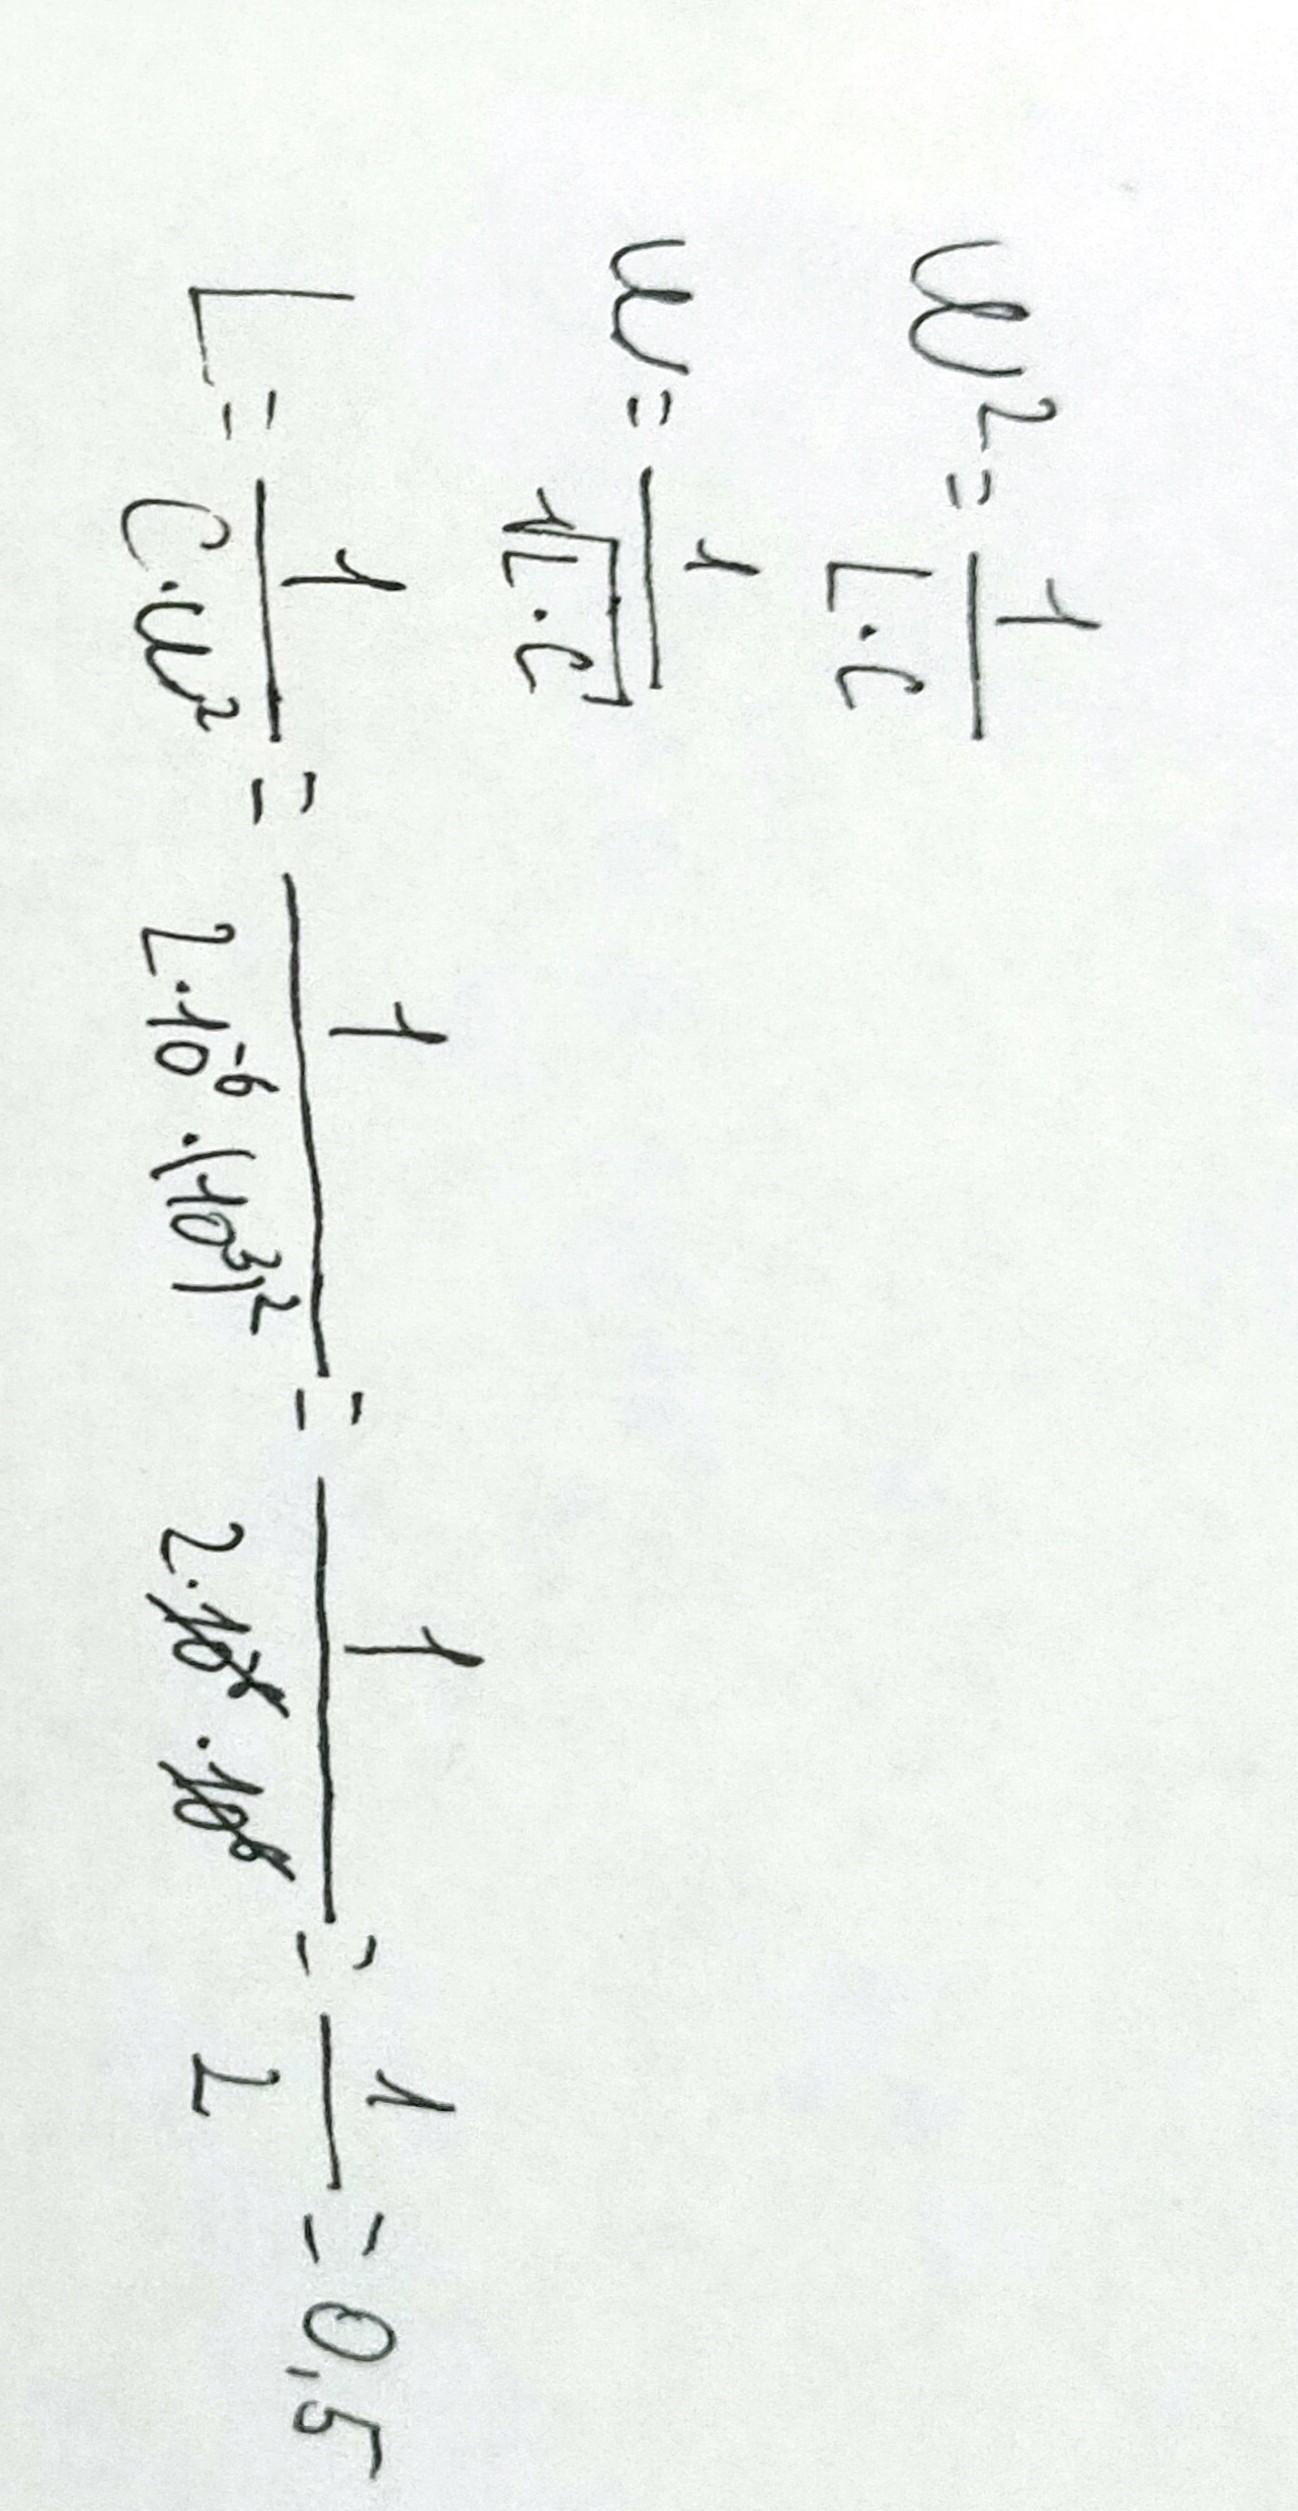 ω² = 1/(L·C)
ω = 1/√(L·C)
L = 1/(C·ω²) = 1/(2·10⁻⁶·(10³)²) = 1/(2·10⁻⁶·10⁶) = 1/2 = 0,5